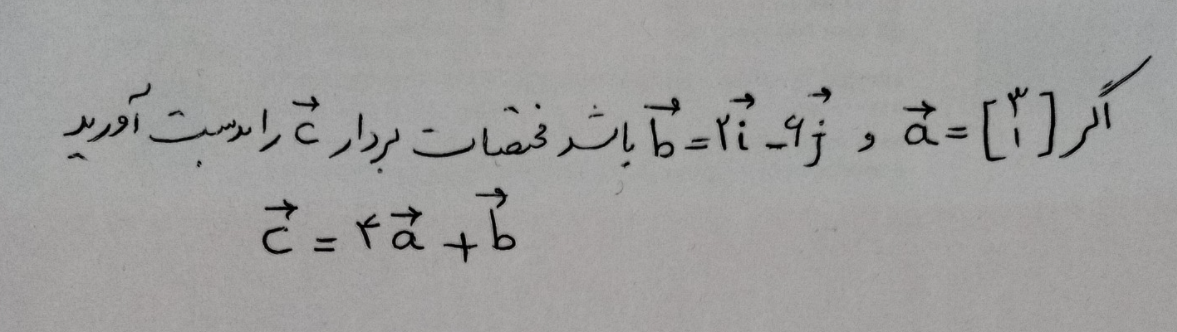 اگر a⃗ = [۳ ۱] و b⃗ = ۲i⃗ - ۶j⃗ باشد مختصات بردار c⃗ را بدست آورید
c⃗ = ۴a⃗ + b⃗